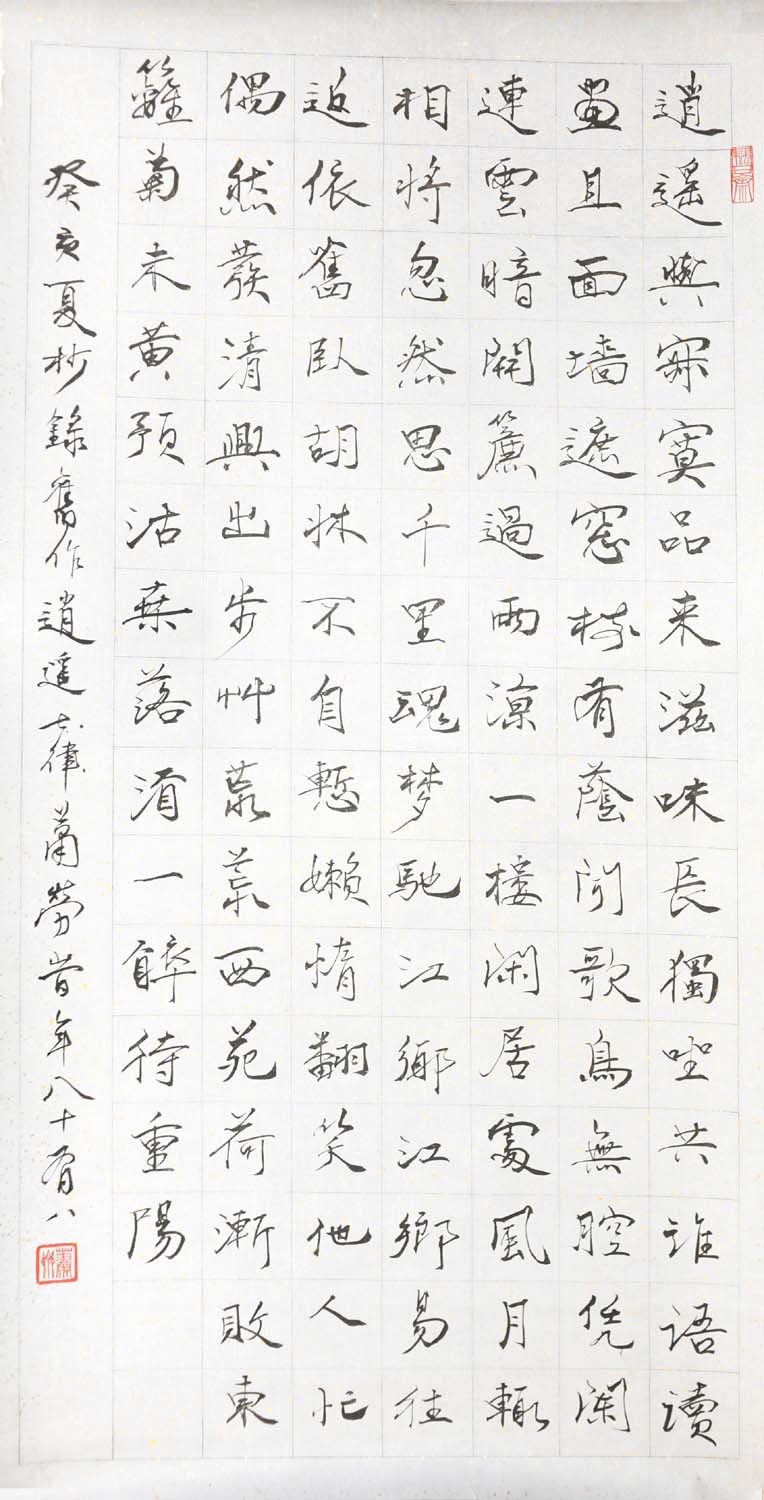 逍遥與寂寞品来滋味長獨坐共誰语讀
畫且面墙遮窓树有蔭聞歌鳥無腔凭闌
連雲暗開簾過雨凉一樓閑居處風月輒
相将忽然思千里魂梦馳江鄉江鄉易往
近依舊卧胡牀不自慙嬾惰翻笑他人忙
偶然發清興出步艸荒荒西苑荷漸敗東
籬菊未黄預沽桒落酒一醉待重陽
癸亥夏杪錄舊作逍遥律蕭勞旹年八十有八